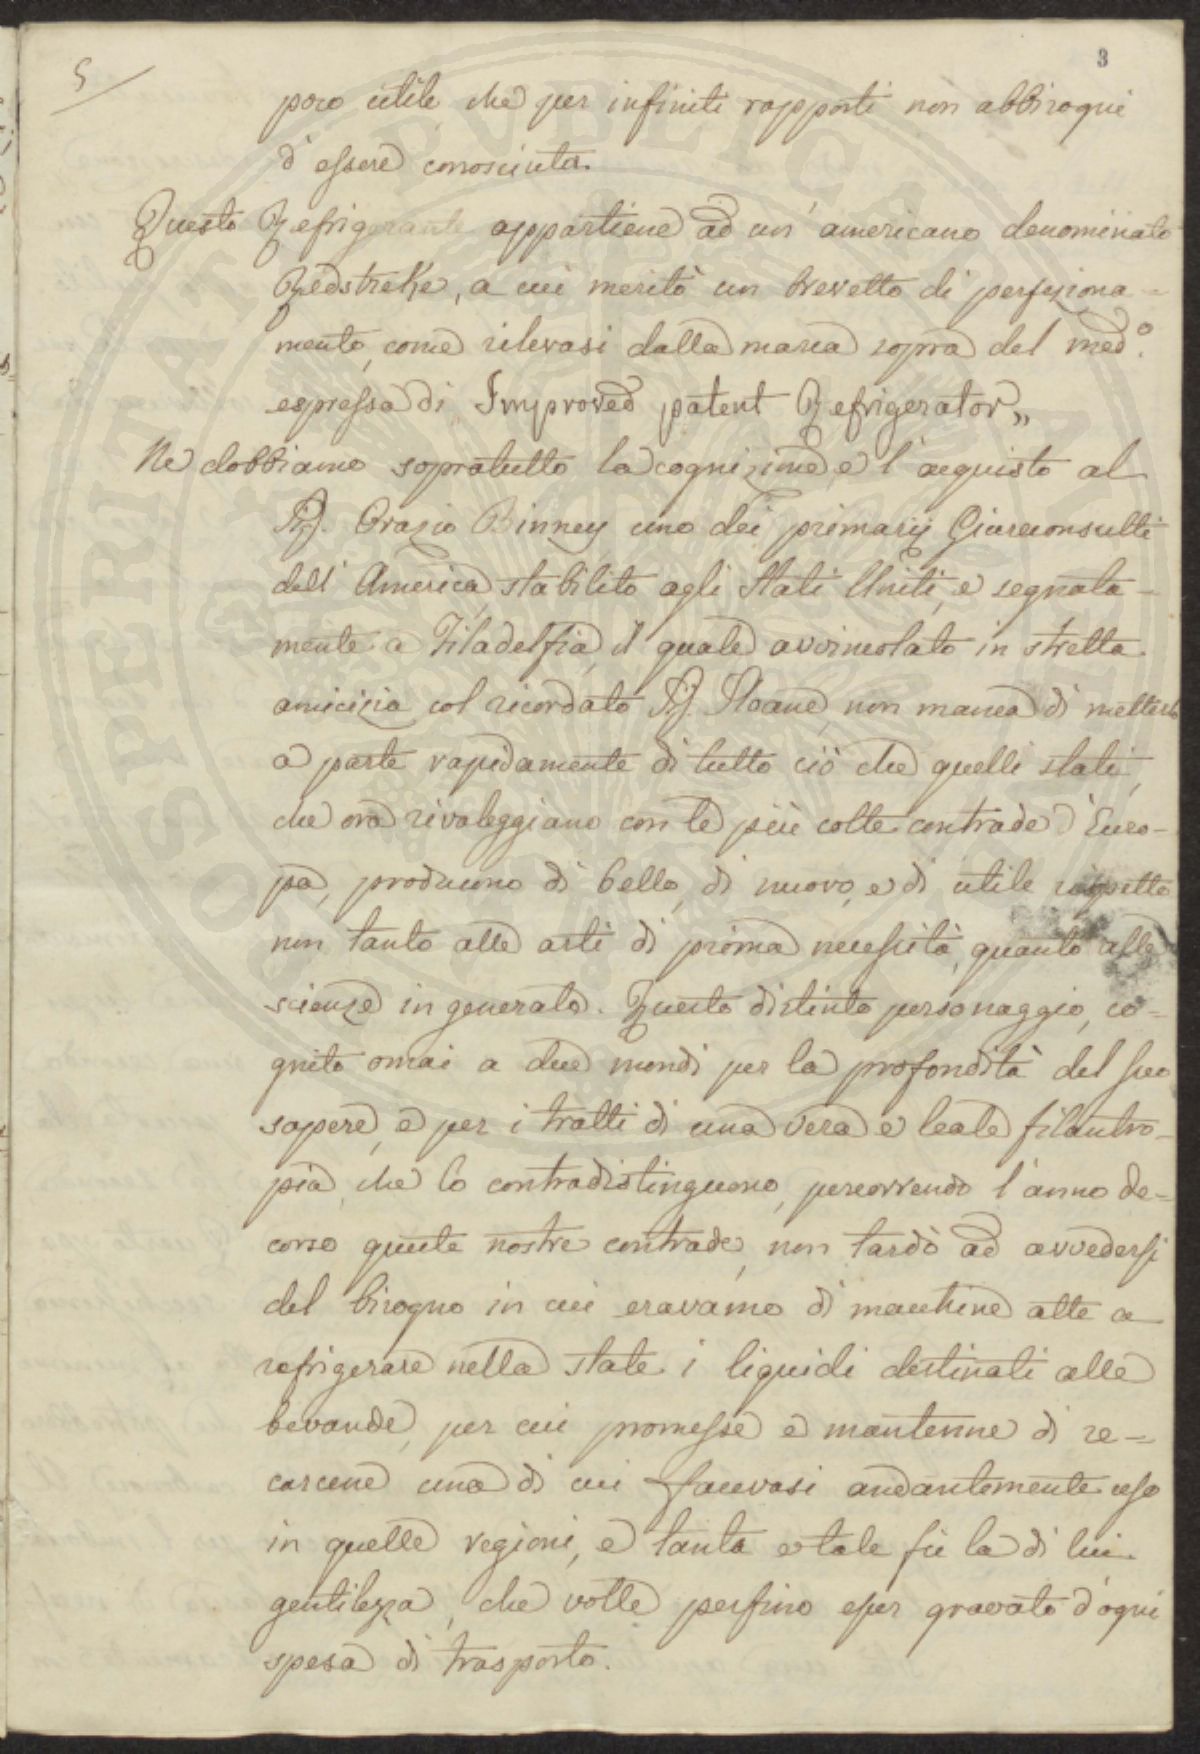 5/
3
poco utile, che per infiniti rapporti non abbisogni
d'essere conosciuta.
Questo Refrigerante appartiene ad un' americano denominato
Redstreke, a cui meritò un brevetto di perfeziona=
mento, come rilevasi dalla marca sopra del med.º
espressa di "Improved patent Refrigerator„
Ne dobbiamo sopratutto la cognizione, e l'acquisto al
Sig. Orazio Binney uno dei primarij Giureconsulti
dell' America, stabilito agli Stati Uniti, e segnata-
mente a Filadelfia, il quale avvincolato in stretta
amicizia col ricordato Sig. Sloane, non manca di metterlo
a parte rapidamente di tutto ciò che quelli stati,
che ora rivaleggiano con le più colte contrade d'Euro-
pa, producono di bello, di nuovo, e di utile rispetto
non tanto alle arti di prima necessità, quanto alle
scienze in generale. Questo distinto personaggio, co-
gnito omai a due mondi per la profondità del suo
sapere, e per i tratti di una vera e leale filantro-
pia che lo contradistinguono, percorrendo l'anno de-
corso queste nostre contrade, non tardò ad avvedersi
del bisogno in cui eravamo di macchine atte a
refrigerare nella state i liquidi destinati alle
bevande, per cui promesse e mantenne di re-=
carcene una di cui facevasi andantemente uso
in quelle regioni, e tanta e tale fù la di lui
gentilezza, che volle perfino esser gravato d'ogni
spesa di trasporto.
ARCHIVVM SECRETVM APOSTOLICVM